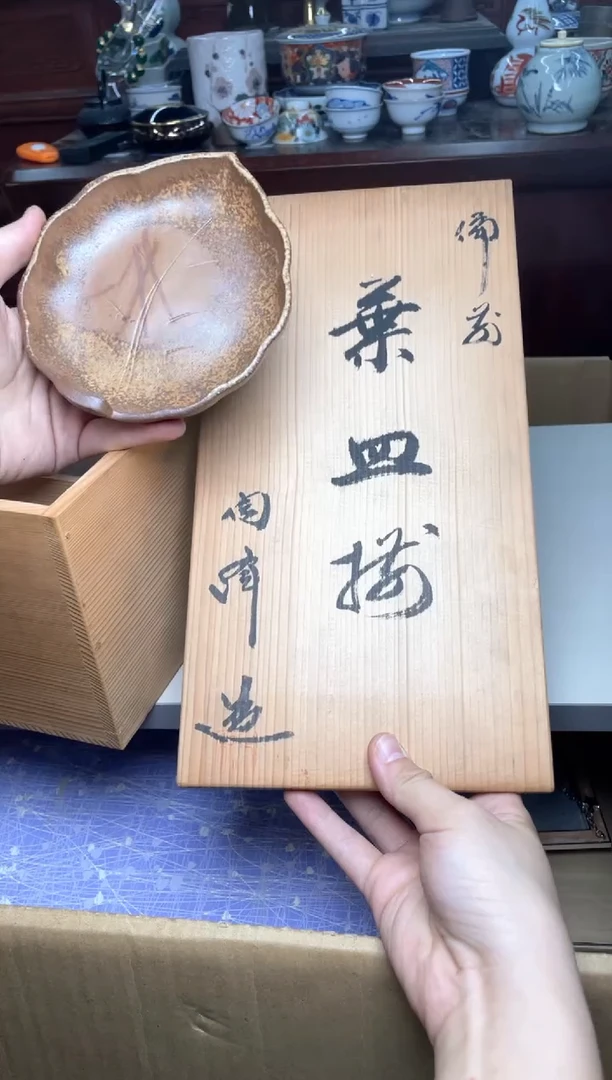 備前
葉皿揃
陶峰造